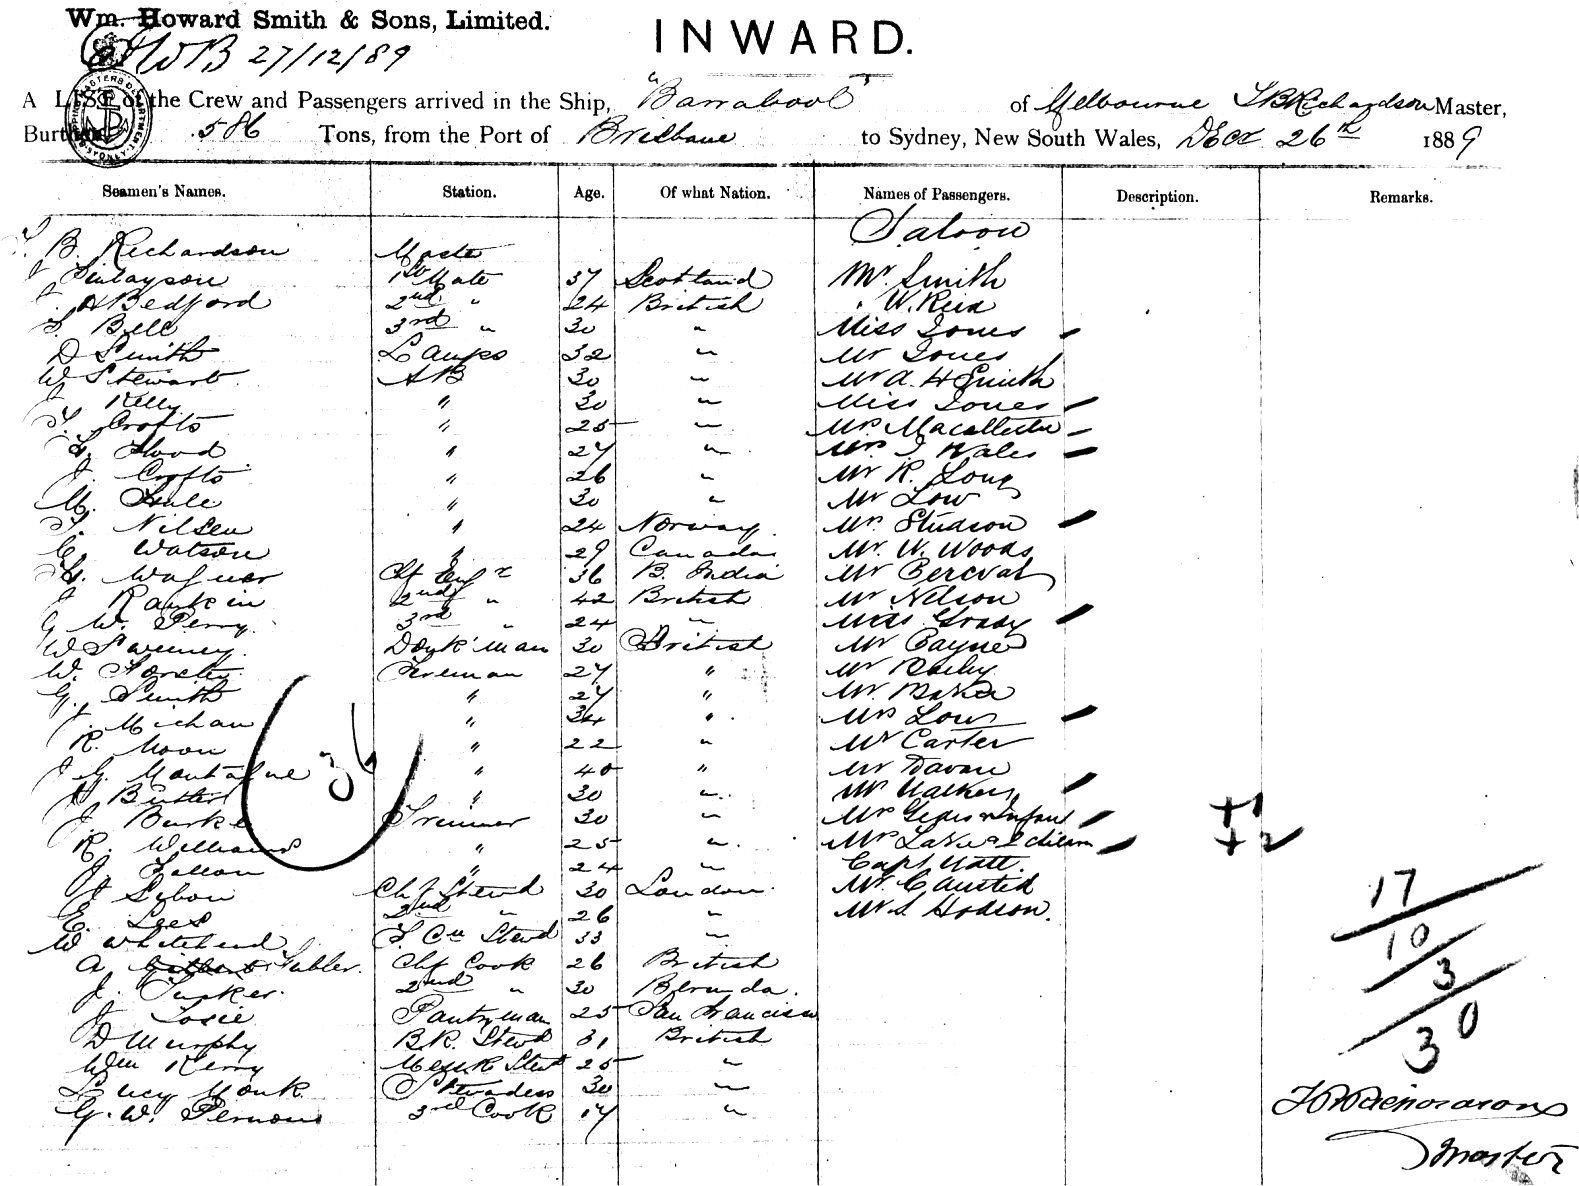 Wm. Howard Smith & Sons, Limited.
INWARD.
27/12/89
A LIST of the Crew and Passengers arrived in the Ship, "Barrabool" of Melbourne T B Richardson Master,
Burthen 586 Tons, from the Port of Brisbane to Sydney, New South Wales, Decr 26th 1889
Seamen's Names. Station. Age. Of what Nation. Names of Passengers. Description. Remarks.
Saloon
T. B. Richardson Master
J Finlayson 1st Mate 37 Scotland Mr Smith
J. H Bedford 2nd " 24 British " W. Reid
T. Bell 3rd " 30 " Miss Jones
D Smith Lamps 32 " Mr Jones
W Stewart AB 30 " Mr A. H Smith
J Kelly " 30 " Miss Jones
T. Crofts " 25 " Mrs
Flood " 27 " Mrs J Wales
J. Crofts " 26 " Mr R. Long
M. " 30 " Mr Low
T. Nilsen " 24 Norway Mrs Studson
C. Watson " 29 Canada Mr. W. Woods
Wagner Chf Engr 36 B. India Mr Percival
J Rankin 2nd " 42 British Mr Nelson
G W. Perry 3rd " 24 " Miss Grady
W Sweeney Donk'man 30 British Mr Payne
W. Forster Fireman 27 " Mr Baily
G. Smith " 27 " Mr. Baker
J. Michan " 34 " Mrs Low
R. Moon " 22 " Mr Carter
J G. Montague " 40 " Mr
H Butler " 30 " Mrs
J Burke Trimmer 30 " Mrs Infant
R. Williams " 25 " Mrs Lake & 2 children
J. Fallon " 24 " Capt
J Chf Stewd 30 London Mr.
E. Lees 2nd " 26 " Mr S. Hodson.
W Whitehead F. Cn Stewd 33 "
A Tubler. Chf Cook 26 British
J. Tucker. 2nd " 30 Bermuda.
J Losie Pantryman 25 San Francisco
D Murphy B.R. Stewd 31 British
Wm Kerry Messr Stewd 25 "
Lucy Monk Stewardess 30 "
G. W. Permono 3rd Cook 17 "
36
+1
+2
17
10
3
30
T B Richardson
Master